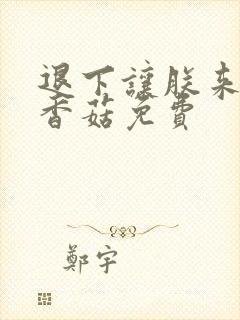 退下讓朕来
香菇免費
鄭宇